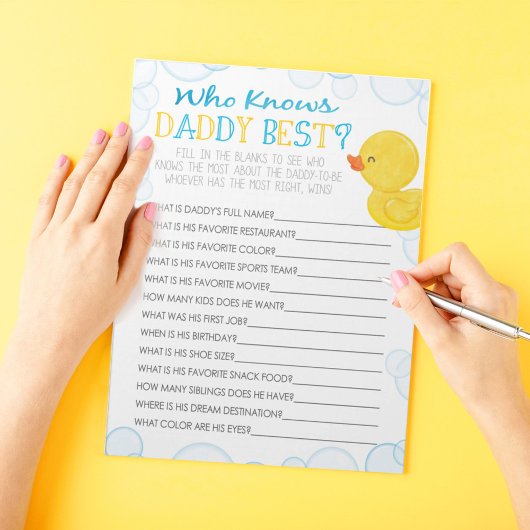 Who Knows
DADDY BEST?
FILL IN THE BLANKS TO SEE WHO
KNOWS THE MOST ABOUT THE DADDY-TO-BE
WHOEVER HAS THE MOST RIGHT, WINS!
WHAT IS DADDY'S FULL NAME?
WHAT IS HIS FAVORITE RESTAURANT?
WHAT IS HIS FAVORITE COLOR?
WHAT IS HIS FAVORITE SPORTS TEAM?
WHAT IS HIS FAVORITE MOVIE?
HOW MANY KIDS DOES HE WANT?
WHAT WAS HIS FIRST JOB?
WHEN IS HIS BIRTHDAY?
WHAT IS HIS SHOE SIZE?
WHAT IS HIS FAVORITE SNACK FOOD?
HOW MANY SIBLINGS DOES HE HAVE?
WHERE IS HIS DREAM DESTINATION?
WHAT COLOR ARE HIS EYES?